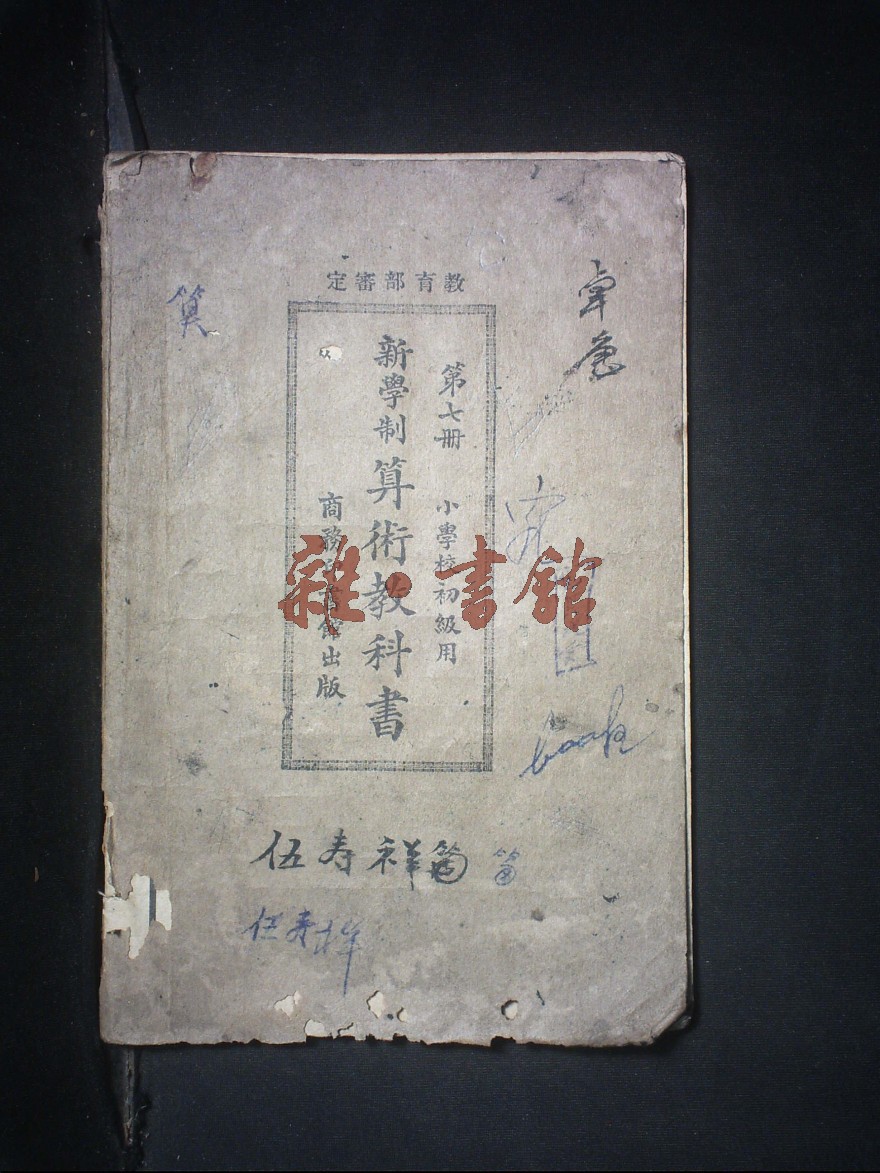 教育部審定
第七册 小學校初級用
新學制算術教科書
商務印書館出版
雜·書館
算
book
伍寿祥
伍寿祥